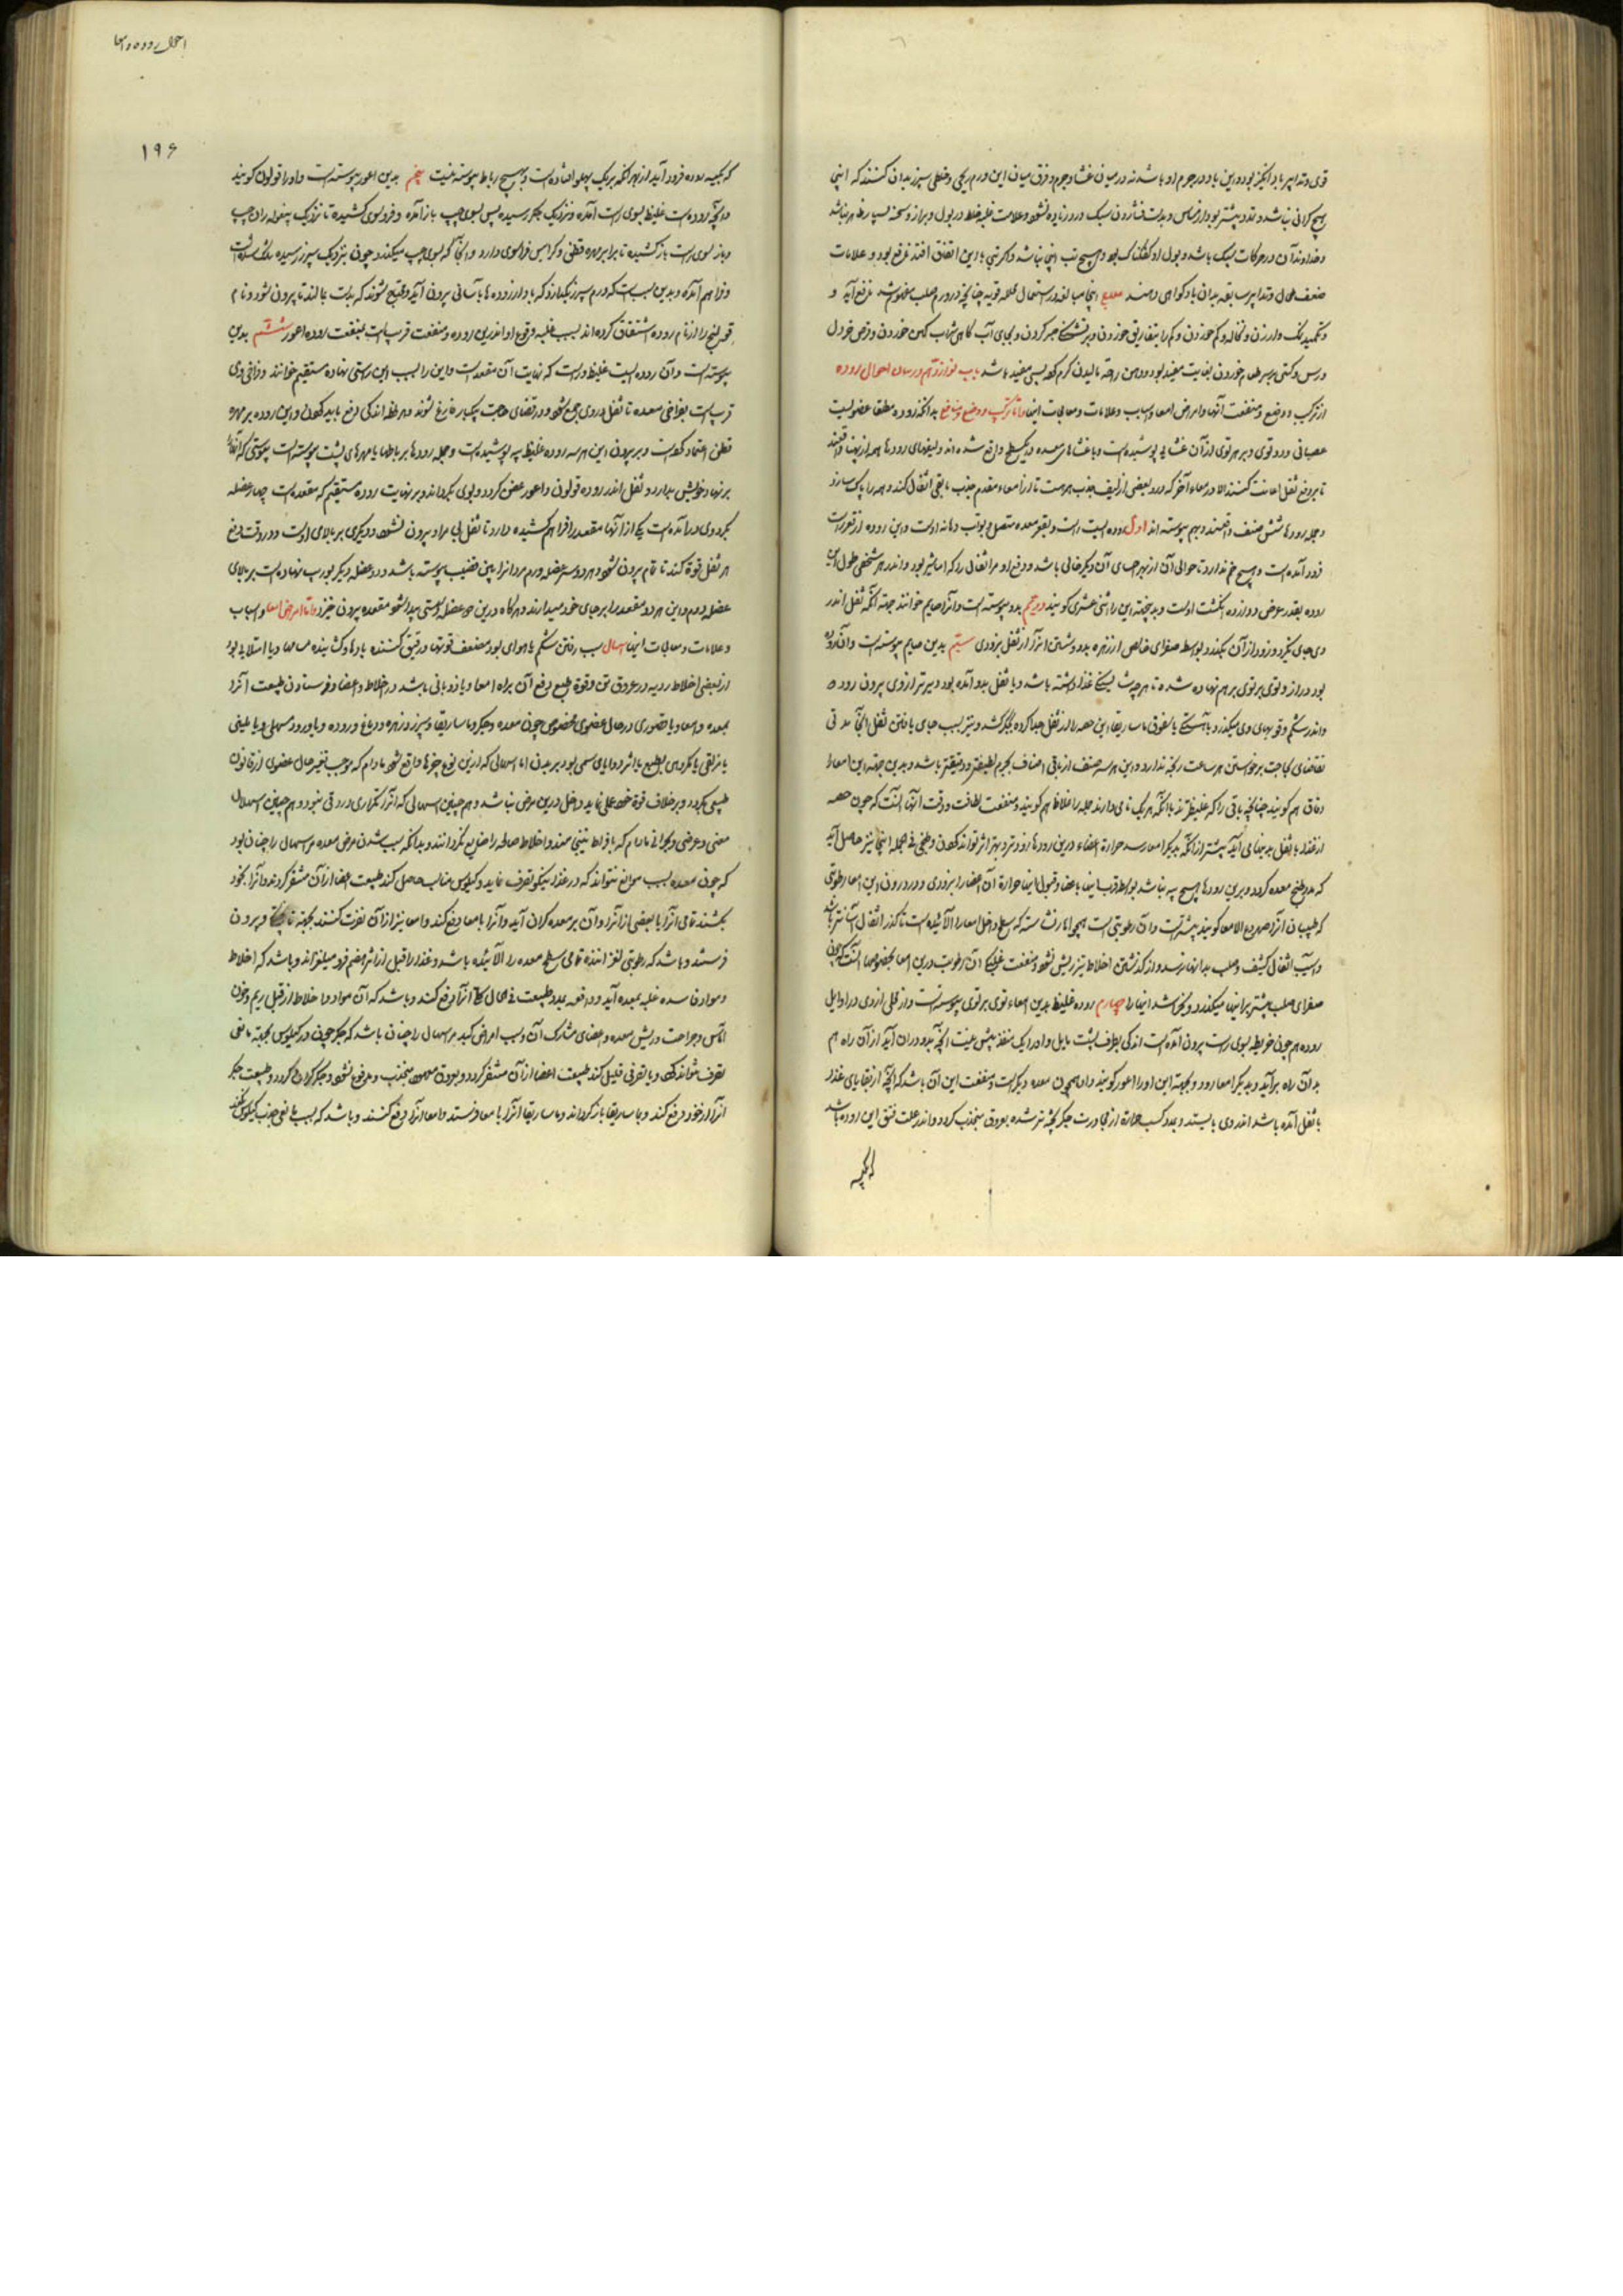 احوال روده و امعا
۱۹۶
قوی و تدابیر باد انگیز بود و این باد در جرم او باشد نه در میان غشا و جرم و فرق میان این ورم ریحی و سپرز بدان کنند که اینجا
هیچ گرانی نباشد و تمدد بیشتر بود
و خداوند آن در حرکات سبک باشد و بول او و هیچ تب اینجا نباشد و اگر تبی با این اتفاق افتد نلرفع بود و علامات
ضعف طحال و تدابیر سابقه بدان یاد گواهی دهند علاج اینجا مبالغه در استعمال قویه چنانچه در ورم صلب
و کم خوردن و کم را بتفاریق خوردن و بر تشنگی صبر کردن و بجای آب شراب کهن خوردن و قرص خردل
بر سر طعام خوردن بغایت مفید بود و مالیدن بسی مفید باشد باب نوزدهم در بیان احوال روده
از ترکیب و وضع و منفعت آنها و امراض امعا و اسباب و علامات و معالجات اینها و اما ترکیب و وضع و منافع بدانکه روده مطلقا عضویست
عصبانی دو توی و بر هر توی از آن غشایی پوشیده است و با غشاهای معده در یک سطح واقع شده‌اند و لیفهای رودها همه از پهنا واقعند
تا بر دفع ثقل اعانت کنند الا در معاء آخر که در او بعضی از لیف جذب هم هست تا از امعاء مقدم جذب ما بقی اثقال کند و همه را پاک سازد
و جمله رودها شش صنف واقعند و بهم پیوسته‌اند اول روده ایست راست و بقعر معده متصل و بواب دهانه اوست و این روده از قعر راست
فرود آمده است و هیچ خم ندارد تا حوالی آن از بهر جای آن دیگر خالی باشد و دفع او مر اثقالی را که بود و اندر هر شخصی طول این
روده بقدر عرض دوازده انگشت اوست و بدین جهت این را اثنی عشری گویند دویم بدو پیوسته است و آنرا صایم خوانند جهت آنکه ثقل اندر
وی جای نگیرد و زود از آن بگذرد بواسطه صفرای خالص از زهره بدو و شستن آنرا از ثقل بزودی سیم بدین صایم پیوسته است و آن روده
بود دراز و توی بر توی بر هم نهاده شده تا هر چه غذا داشته باشد و با ثقل بدو آمده بود دیرتر از وی بیرون رود
و اندر شکم و قوبهای وی میگذرد و باهستگی تا بعروق ماساریقا این حصه را از ثقل جدا کرده بجگر کشد و نیز بسبب جای یافتن ثقل آنجا مدتی
تقاضای حاجت برخواستن هر ساعت رنجه ندارد و این هر سه صنف از باقی اصناف بجرم لطیفتر و دقیقتر باشد و بدین جهت این امعا را
دقاق هم گویند چنانچه باقی را که غلیظترند با آنکه هر یک نامی دارند جمله را غلاظ هم گویند و منفعت لطافت و دقت آنها آنست که چون حصه
از غذا با ثقل بدینها می آید پیشتر از آنکه بدیگر امعا رسد حرارة اعضاء درین رودها زودتر و بهتر اثر تواند کردن و طبخی فی الجمله اینجا نیز حاصل آید
که مدد طبخ معده گردد و برین رودها هیچ پیه نباشد بواسطه قرب اینها باعضا و قبول اینها حرارة آن اعضا را بزودی و در درون این امعا رطوبتی
که طبیبان آنرا صهروج الامعا گویند بیشتر است و آن رطوبتی است همچو اما نشاسته که سطح داخل امعا را آلائیده است تا گذر اثقال آسانتر باشد
و آسیب اثقال کثیف و صلب بدانها نرسد و از گذشتن اخلاط تیز ریش نشود و منفعت غلبگی آن رطوبت درین امعا آنست که چون
صفرای صلب بیشتر بر اینها میگذرد و نخراشد اینها را چهارم روده غلیظ بدین امعاء توی بر توی پیوسته است و از محلی از وی در اوایل
روده هم چون خریطه بسوی راست بیرون آمده است اندکی بطرف پشت مایل و او را یک منفذ بیش نیست آنچه بدو در آن آید از آن راه هم
بدان راه برآید و بدیگر امعا رود و بجهت این او را اعور گویند و آن همچون معده دیگر است و منفعت این آن باشد که آنچه از بقایای غذا
با ثقل آمده باشد اندر وی بایستد و بدو کسب حرارة از مجاورت جگر پخته‌تر شده بعروق منجذب گردد و اندر علت فتق این روده باشد
که بکیسه
که بکیسه بروده فرود آید از بهر آنکه بر یک پهلو افتاده است و هیچ رباط پیوسته نیست پنجم بدین اعور پیوسته است و او را قولون گویند
و آنچه روده است غلیظ بسوی راست آمده و نزدیک جگر رسیده پس بسوی چپ باز آمده و فرو سوی کشیده تا نزدیک بیغوله ران چپ
و باز بسوی راست باز کشیده تا برابر مهره قطن و فرا سوی دارد و آنجا که بسوی چپ میگذرد چون بنزدیک سپرز رسیده
و فراهم آمده و بدین سبب است که ورم سپرز نگذارد که باد از روده ها بآسانی بیرون آید و محتاج شوند که بدست بمالند تا بیرون شود و نام
قولنج را از نام روده اشتقاق کرده‌اند بسبب غلبه وقوع او اندرین روده و منفعت قریب است بمنفعت روده اعور ششم بدین
پیوسته است و آن روده ایست غلیظ و راست که نهایت آن مقعد است و این را بسبب این راستی نهاده مستقیم خوانند و فراخی وی
قریب است بفراخی معده تا ثقل در وی جمع شود و در تقاضای حاجت یکبار فارغ شوند و هر لحظه اندکی دفع نباید کردن و این روده بر مهره
قطن اعتماد کرده است و بر بیرون این هر سه روده غلیظ پیه پوشیده است و جمله رودها برباطها با مهرهای پشت پیوسته است
بر نهاد خویش بدارد و ثقل اندر روده قولون و اعور عفن گردد و بوی بگرداند و بر نهایت روده مستقیم که مقعد است چهار عضله
گرد وی درآمده است یکی از آنها مقعد را فراهم کشیده دارد تا ثقل بی مراد بیرون نشود و دیگری بر بالای اوست و در وقت دفع
هر ثقل قوة کند تا تمام بیرون شود و هر دو سر عضله دوم مردانرا به بن قضیب پیوسته باشد و دو عضله دیگر بورب نهاده است بر بالای
عضله دوم و این هر دو مقعد را بر جای خود میدارند و هرگاه درین دو عضله سستی پیدا شود مقعده بیرون خیزد و اما امراض امعا و اسباب
و علامات و معالجات اینها اسهال سبب رفتن شکم یا هوای بود مضعف قوتها و رقیق کننده بادها و گشاینده مسامها و یا امتلایی بود
از بعضی اخلاط ردیه در عروق تن و قوة طبع و دفع آن براه امعا و یا ذوبانی باشد در اخلاط و اعضا و فرستادن طبیعت آنرا
بمعده و امعا و یا قصوری در حال عضوی مخصوص چون معده و جگر و ماساریقا و سپرز و زهره و دماغ و روده و یا ورود مسهلی و یا ملینی
یا مزلقی یا مکروهی بطبع یا اثر دوایهای سمی بود بر بدن اما اسهالی که ازین نوع چیزها واقع شود مادام که موجب تغیر حال عضوی از قانون
طبیعی نگردد و بر خلاف قوة خود عملی نماید داخل درین مرض نباشد و هم چنین اسهالی که آنرا تکراری و رقتی نبود و هم چنین اسهال
معنی و عرضی و بحرانی مادام که بافراط نینجامند و اخلاط صالحه را ضایع نگردانند و بدانکه سبب شدن مرض معده مر اسهال را چنان بود
که چون معده بسبب موانع نتواند که در غذا نیکو تصرف نماید و کیلوس مناسب حاصل کند طبیعت اعضا از آن متنفر گردند و آنرا بخود
نکشند تمامی آنرا یا بعضی از آنرا و آن بر معده گران آید و آنرا بامعا دفع کند و امعا نیز از آن نفرت کنند و بیرون
فرستند و باشد که رطوبتی لغزاننده تمامی سطح معده را آلائیده باشد و غذا را قبل از اثر هضم فرو میلغزاند و باشد که اخلاط
و مواد فاسده غلبه بمعده آید و دافعه بمدد طبیعت فی الحال آنرا دفع کند و باشد که آن مواد و اخلاط از قبل ریم و خون
آماس و جراحت و ریش معده و اعضای مشارک آن و سبب امراض کبد مر اسهال را چنان باشد که جگر چون در کیلوس بجهت مانعی
تصرف نتواند کرد و یا تصرفی قلیل کند طبیعت اعضا از آن متنفر گردد و بعروق منجذب و مدفوع نشود و جگر گران گردد و طبیعت جگر
آنرا از خود دفع کند و بماساریقا باز گرداند و ماساریقا آنرا بامعا فرستد و امعا آنرا دفع کنند و باشد که بسبب مانعی جذب کیلوس نکند